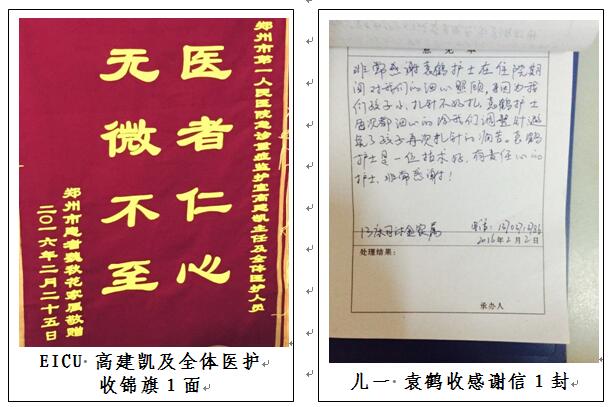 郑州市第一人民医院急诊重症监护室高建凯主任及全体医护人员
医者仁心
无微不至
郑州市患者魏秋花家属敬赠
二〇一六年二月二十五日
EICU 高建凯及全体医护
收锦旗1面
意见本
非常感谢袁鹤护士在住院期
间对我们的细心照顾,因为我
们孩子小,扎针不好扎,袁鹤护士
每次都细心的给我们调整时避
免了孩子再次扎针的病苦。袁鹤
护士是一位技术好,有责任心的
护士,非常感谢!
2016年2月2日
处理结果:
承办人
儿一 袁鹤收感谢信1封